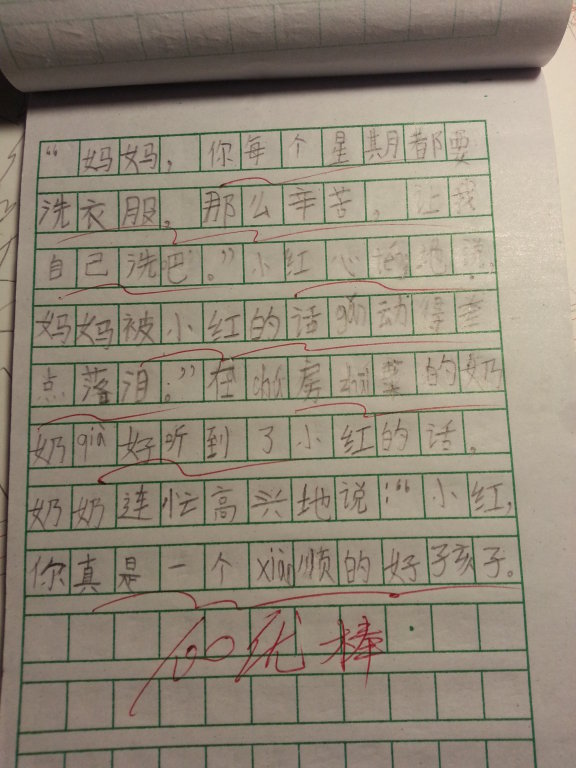 “妈妈，你每个星期都要
洗衣服。那么辛苦，让我
自己洗吧。”小红心téng地说。
妈妈被小红的话gǎn动得差
点落泪。”在chú房zhǔ菜的奶
奶qià好听到了小红的话。
奶奶连忙高兴地说：“小红，
你真是一个xiào顺的好子孩子。
100优棒